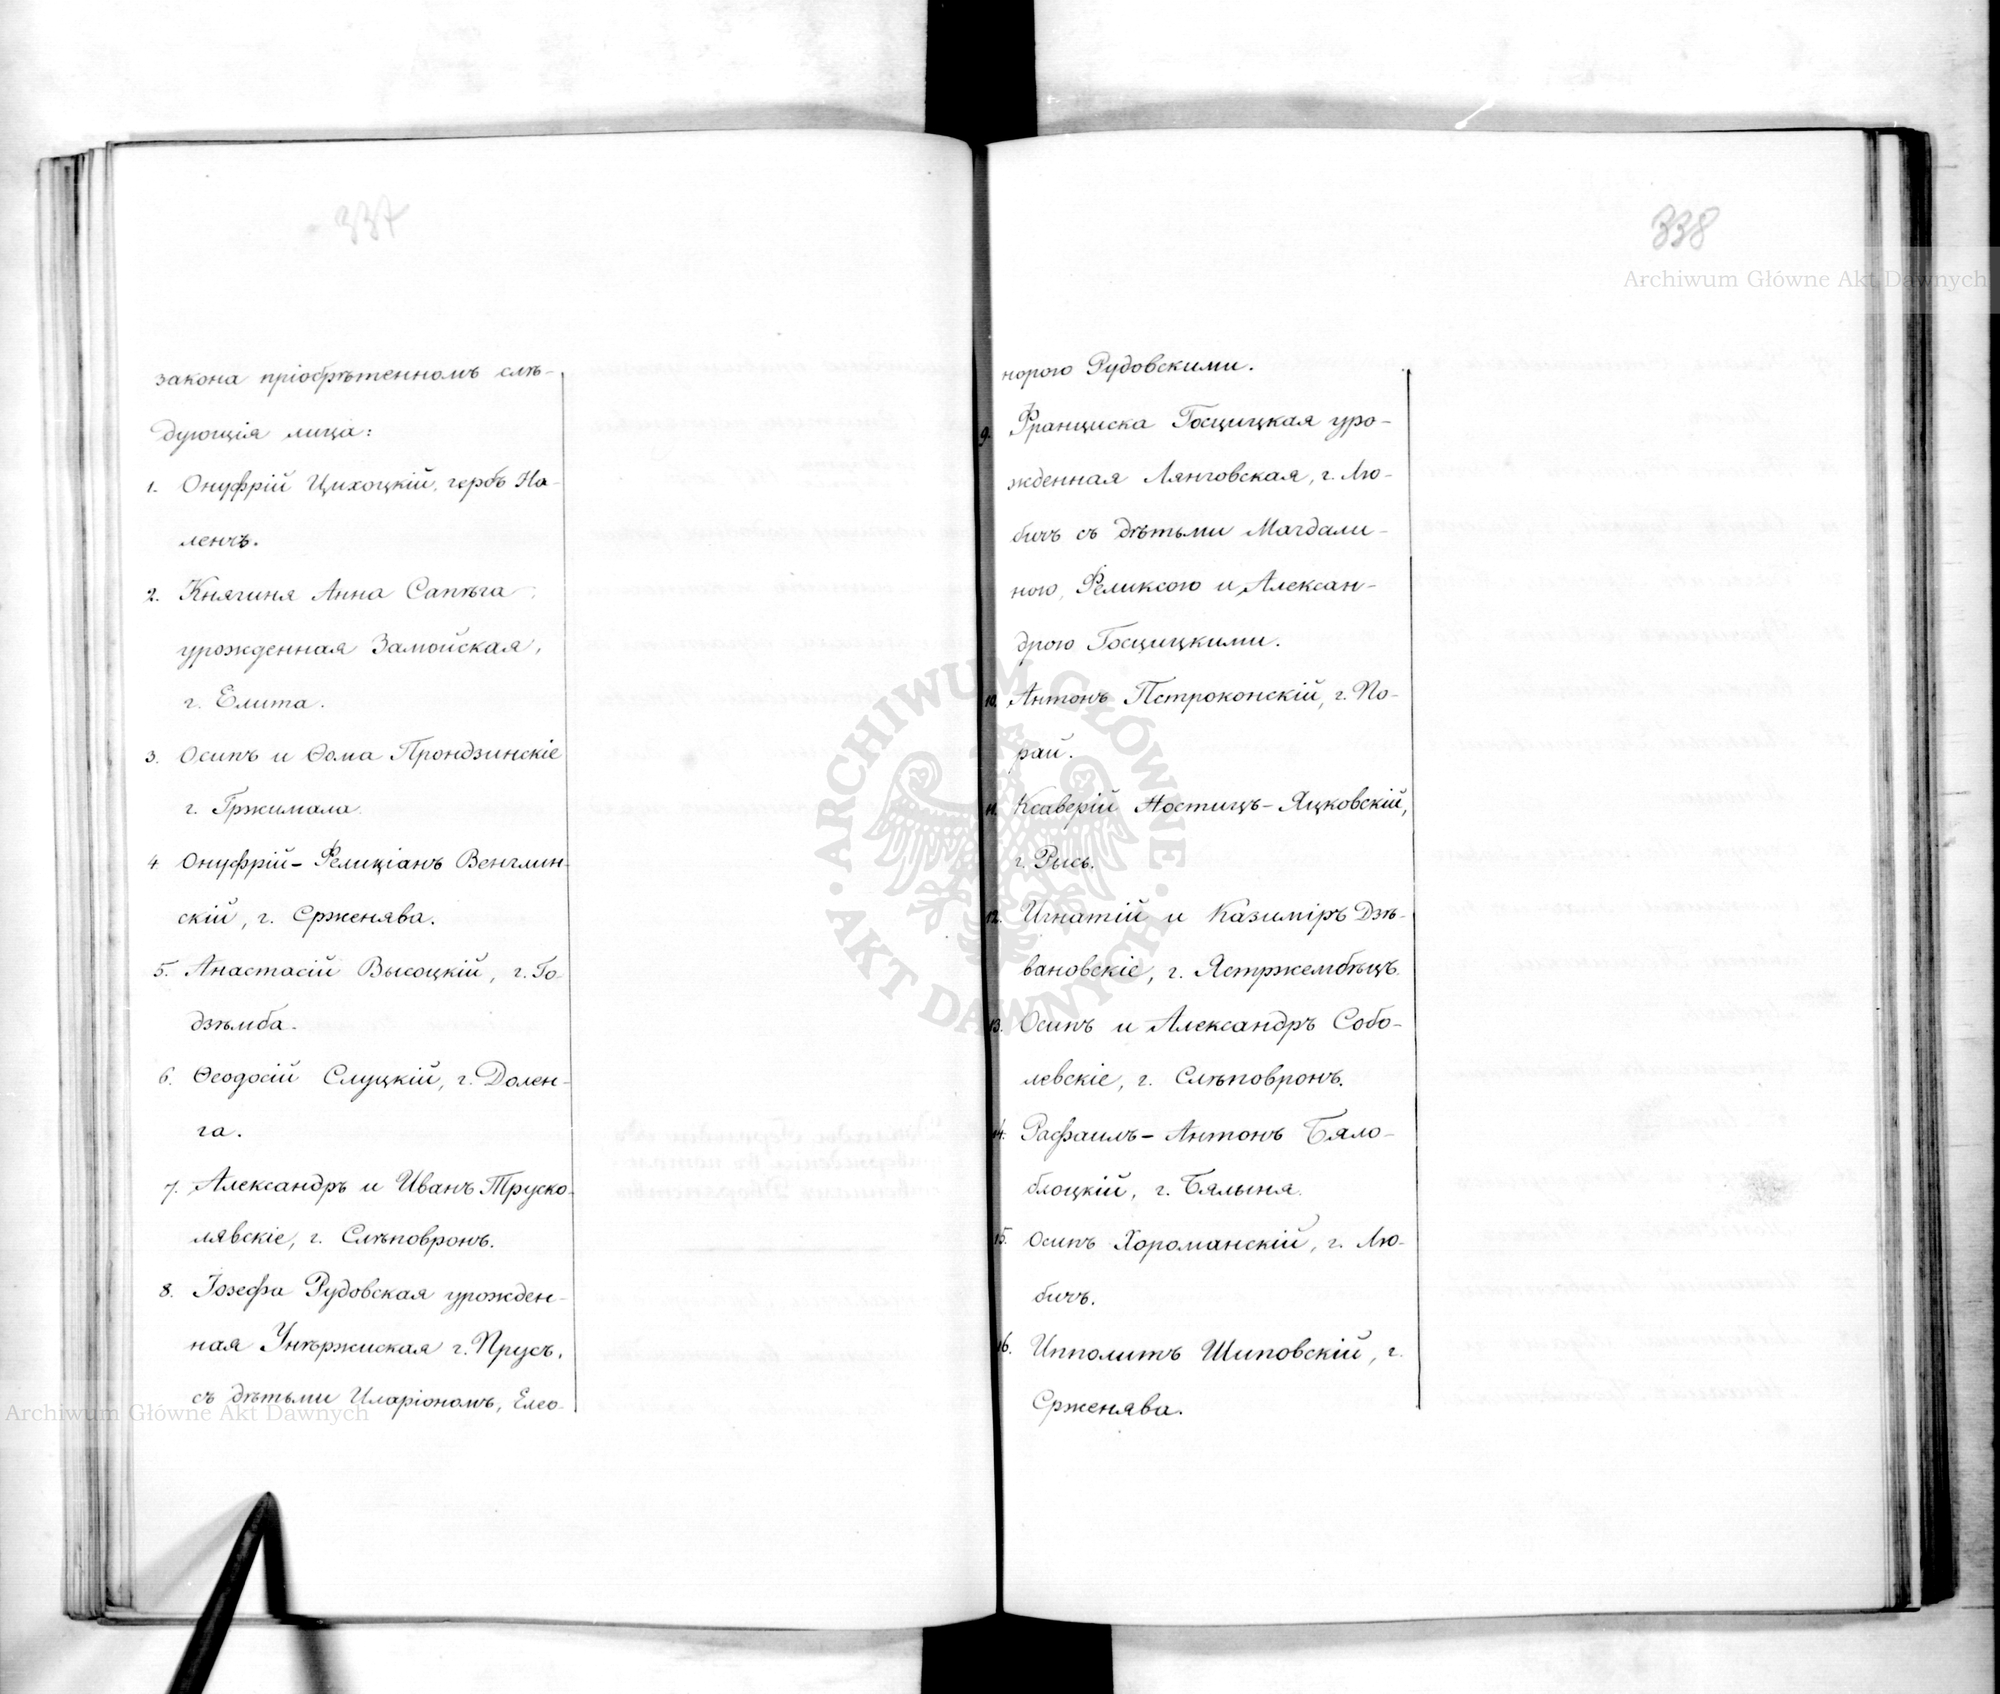 337
закона пріобрѣтенномъ слѣ-
дующія лица:
1. Онуфрій Цихоцкій, гербъ На-
ленчъ.
2. Княгиня Анна Сапѣга
урожденная Замойская,
г. Елита.
3. Осипъ и Ѳома Прондзинскіе
г. Гржимала.
4. Онуфрій-Фелиціанъ Венглин-
скій, г. Срженява.
5. Анастасій Высоцкій, г. Го-
дзѣмба.
6. Ѳеодосій Слуцкій, г. Долен-
га.
7. Александръ и Иванъ Труско-
лявскіе, г. Слѣповронъ.
8. Іозефа Рудовская урожден-
ная Унѣржиская г. Прусъ,
съ дѣтьми Иларіономъ, Елео-
338
норою Рудовскими.
9. Франциска Госцицкая уро-
жденная Лянговская, г. Лю-
бичъ съ дѣтьми Магдали-
ною, Феликсою и Алексан-
дрою Госцицкими.
10. Антонъ Пстроконскій, г. По-
рай.
11. Ксаверій Ностицъ-Яцковскій,
г. Рысь.
12. Игнатій и Казиміръ Дзѣ-
вановскіе, г. Ястржембѣцъ.
13. Осипъ и Александръ Собо-
левскіе, г. Слѣповронъ.
14. Рафаилъ-Антонъ Бяло-
блоцкій, г. Бялыня.
15. Осипъ Хороманскій, г. Лю-
бичъ.
16. Ипполитъ Шиповскій, г.
Срженява.
Archiwum Główne Akt Dawnych
Archiwum Główne Akt Dawnych
ARCHIWUM GŁÓWNE
AKT DAWNYCH